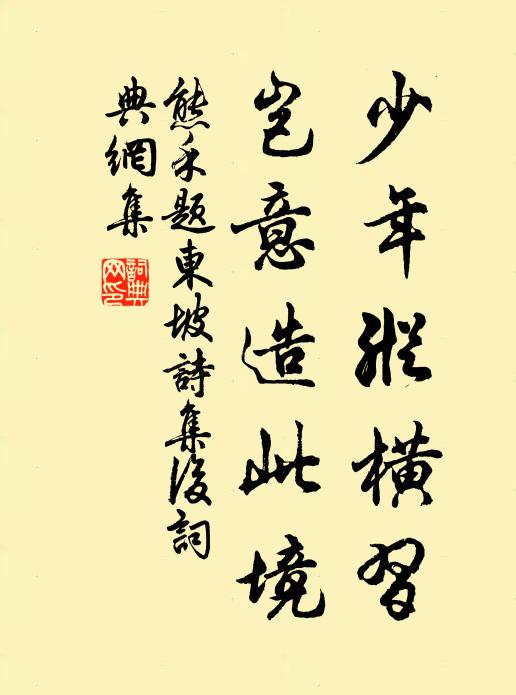 少年縱橫習
豈意造此境
熊禾題東坡詩集後詞
典網集
詞典網印